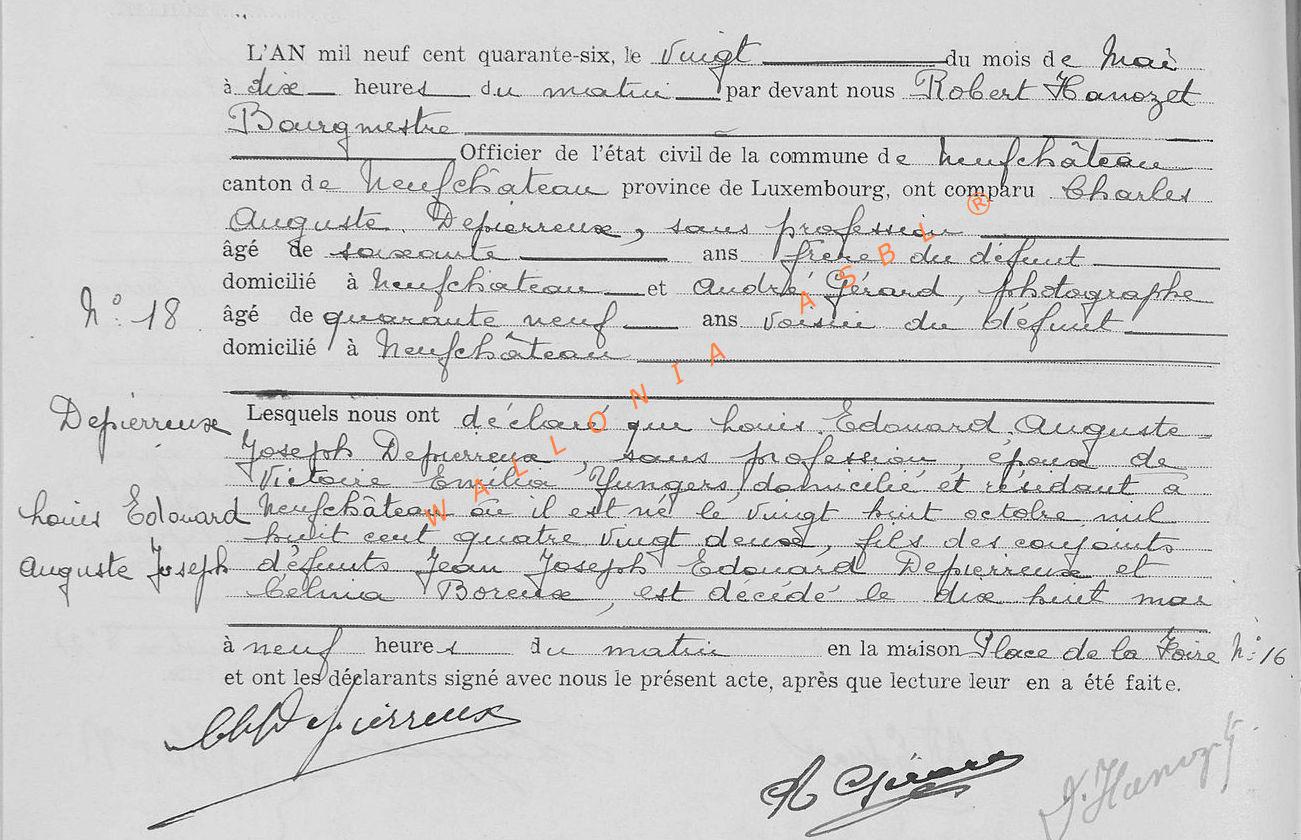 L'AN mil neuf cent quarante-six, le vingt du mois de Mai
à dix heures du matin par devant nous Robert Hanozet
Bourgmestre
Officier de l'état civil de la commune de Neufchâteau
canton de Neufchâteau province de Luxembourg, ont comparu Charles
Auguste Depierreux, sans profession
âgé de soixante ans frère du défunt
domicilié à Neufchâteau et André Gérard, photographe
N° 18
âgé de quarante neuf ans voisin du défunt
domicilié à Neufchâteau
Depierreux
Lesquels nous ont déclaré que Louis Edouard Auguste
Joseph Depierreux, sans profession, époux de
Victoire Emélia Yungers, domicilié et résidant à
Louis Edouard
Neufchâteau où il est né le vingt huit octobre mil
huit cent quatre vingt deux, fils des conjoints
Auguste Joseph
défunts Jean Joseph Edouard Depierreux et
Célinia Boreux, est décédé le dix huit mai
à neuf heures du matin en la maison Place de la Foire N° 16
et ont les déclarants signé avec nous le présent acte, après que lecture leur en a été faite.
Ch Depierreux
A Gérard
Hanozet
WALLONIA ASBL ®